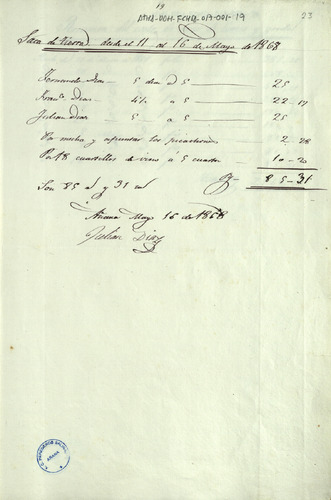 19
ATHA-DOH-FCHG-019-001-19
23
Saca de tierra desde el 11 al 16 de Mayo de 1868
Fernando Diaz 5 dias á 5 25
Franco Diaz 4½ á 5 22-17
Julian Diaz 5 á 5 25
Pa mecha y componer los picachones 2-28
Pr 18 cuartillos de vino á 5 cuartos 10-20
Son 85 rs y 31 ms 85-31
Añana Mayo 16 de 1868
Julian Diaz
AÑANA